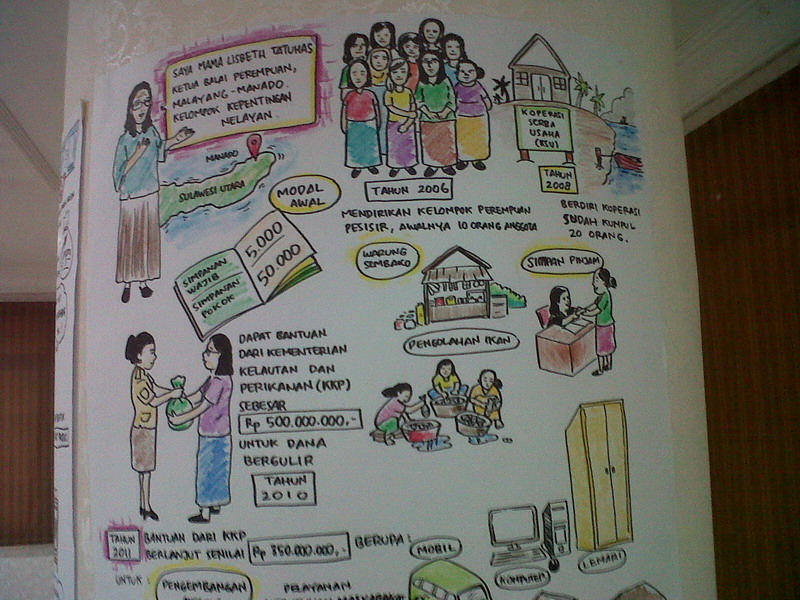 SAYA MAMA LISBETH TATUHAS
KETUA BALAI PEREMPUAN,
MALAYANG-MANADO.
KELOMPOK KEPENTINGAN
NELAYAN.
MANADO
SULAWESI UTARA
MODAL
AWAL
SIMPANAN
WAJIB
5.000
SIMPANAN
POKOK
50.000
TAHUN 2006
MENDIRIKAN KELOMPOK PEREMPUAN
PESISIR, AWALNYA 10 ORANG ANGGOTA
KOPERASI
SERBA
USAHA
(KSU)
TAHUN
2008
BERDIRI KOPERASI
SUDAH KUMPUL
20 ORANG.
WARUNG
SEMBAKO
SIMPAN PINJAM
PENGOLAHAN IKAN
DAPAT BANTUAN
DARI KEMENTERIAN
KELAUTAN DAN
PERIKANAN (KKP)
SEBESAR
Rp 500.000.000,-
UNTUK DANA
BERGULIR
TAHUN
2010
TAHUN
2011
BANTUAN DARI KKP
BERLANJUT SENILAI Rp 350.000.000,- BERUPA:
MOBIL
KOMPUTER
LEMARI
UNTUK:
PENGEMBANGAN
PELAYANAN